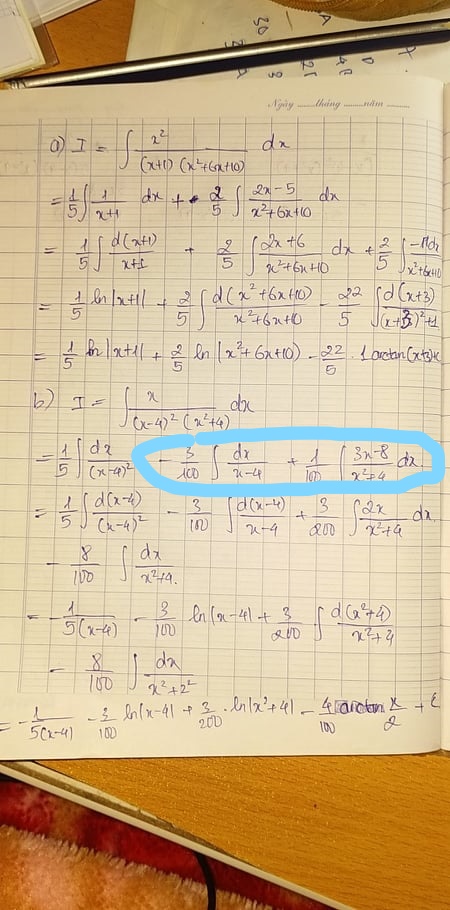 Ngày ........tháng ........năm ........
a) I = ∫ x² / (x+1)(x²+6x+10) dx
= 1/5 ∫ 1/(x+1) dx + 2/5 ∫ (2x-5)/(x²+6x+10) dx
= 1/5 ∫ d(x+1)/(x+1) + 2/5 ∫ (2x+6)/(x²+6x+10) dx + 2/5 ∫ -11dx/(x²+6x+10)
= 1/5 ln|x+1| + 2/5 ∫ d(x²+6x+10)/(x²+6x+10) - 22/5 ∫ d(x+3)/((x+3)²+1)
= 1/5 ln|x+1| + 2/5 ln|x²+6x+10| - 22/5 . 1 arctan(x+3)+c
b) I = ∫ x / (x-4)²(x²+4) dx
= 1/5 ∫ dx/(x-4)² - 3/100 ∫ dx/(x-4) + 1/100 ∫ (3x-8)/(x²+4) dx
= 1/5 ∫ d(x-4)/(x-4)² - 3/100 ∫ d(x-4)/(x-4) + 3/200 ∫ 2x/(x²+4) dx.
- 8/100 ∫ dx/(x²+4).
= -1/5(x-4) - 3/100 ln|x-4| + 3/200 ∫ d(x²+4)/(x²+4)
- 8/100 ∫ dx/(x²+2²)
= -1/5(x-4) - 3/100 ln|x-4| + 3/200 . ln|x²+4| - 4/100 arctan x/2 + c